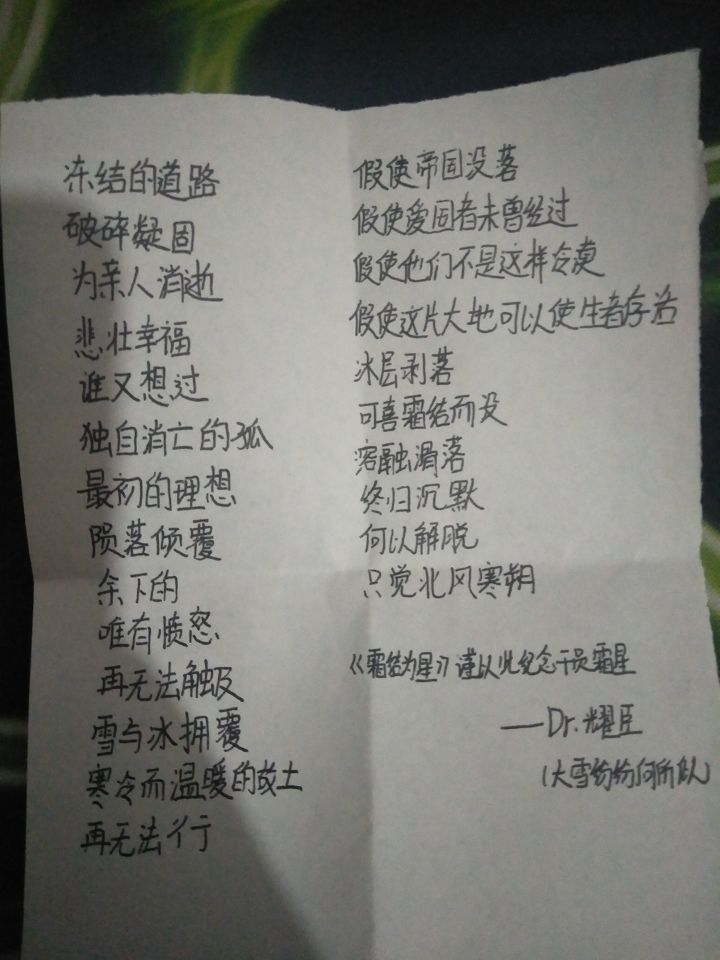 冻结的道路
破碎凝固
为亲人消逝
悲壮幸福
谁又想过
独自消亡的孤
最初的理想
陨落倾覆
余下的
唯有愤怒
再无法触及
雪与冰拥覆
寒冷而温暖的故土
再无法行
假使帝国没落
假使爱国者未曾经过
假使他们不是这样冷漠
假使这片大地可以使生者存活
冰层剥落
可喜霜结而没
溶融涓落
终归沉默
何以解脱
只觉北风寒朔
《霜结为星》谨以此纪念干员霜星
——Dr.耀臣
(大雪纷纷何所似)